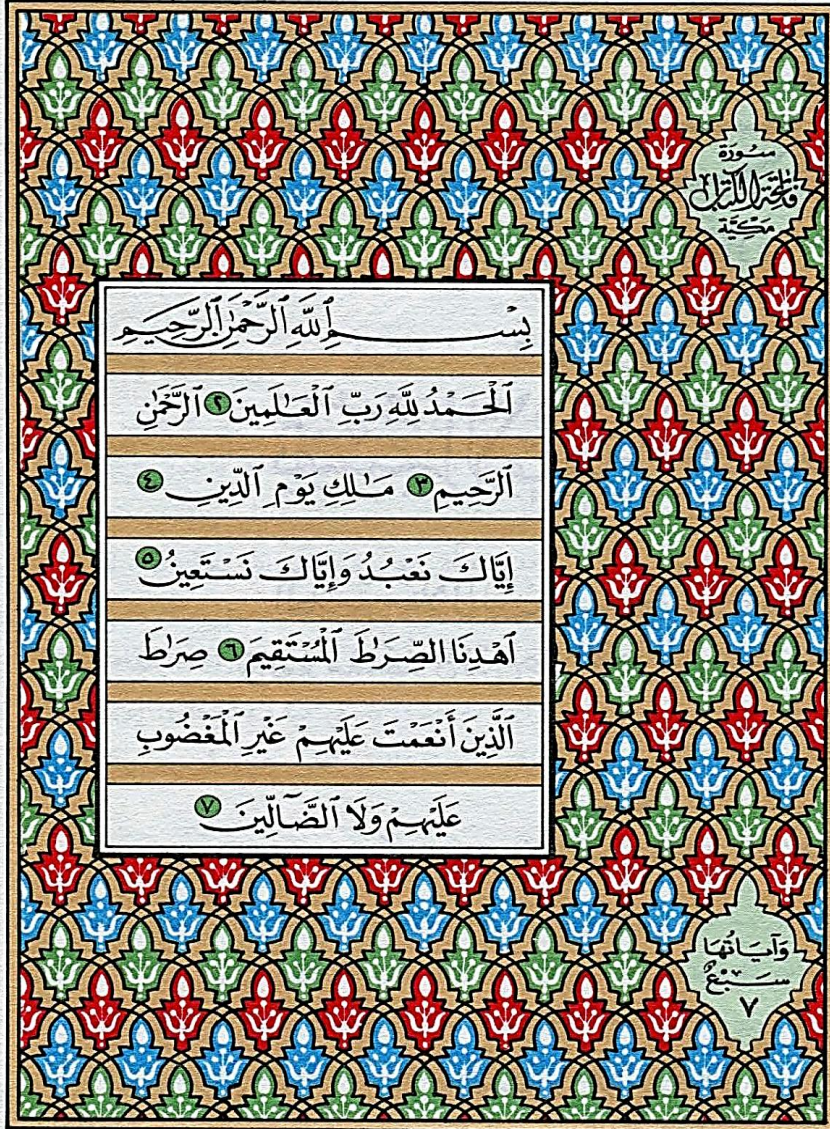 سُورَة
فَاتِحَةِ الْكِتَابِ
مَكِّيَّة
بِسْمِ ٱللَّهِ ٱلرَّحْمَٰنِ ٱلرَّحِيمِ
ٱلْحَمْدُ لِلَّهِ رَبِّ ٱلْعَٰلَمِينَ ٢ ٱلرَّحْمَٰنِ
ٱلرَّحِيمِ ٣ مَٰلِكِ يَوْمِ ٱلدِّينِ ٤
إِيَّاكَ نَعْبُدُ وَإِيَّاكَ نَسْتَعِينُ ٥
ٱهْدِنَا ٱلصِّرَٰطَ ٱلْمُسْتَقِيمَ ٦ صِرَٰطَ
ٱلَّذِينَ أَنْعَمْتَ عَلَيْهِمْ غَيْرِ ٱلْمَغْضُوبِ
عَلَيْهِمْ وَلَا ٱلضَّآلِّينَ ٧
وَآيَاتُهَا
سَبْعٌ
٧